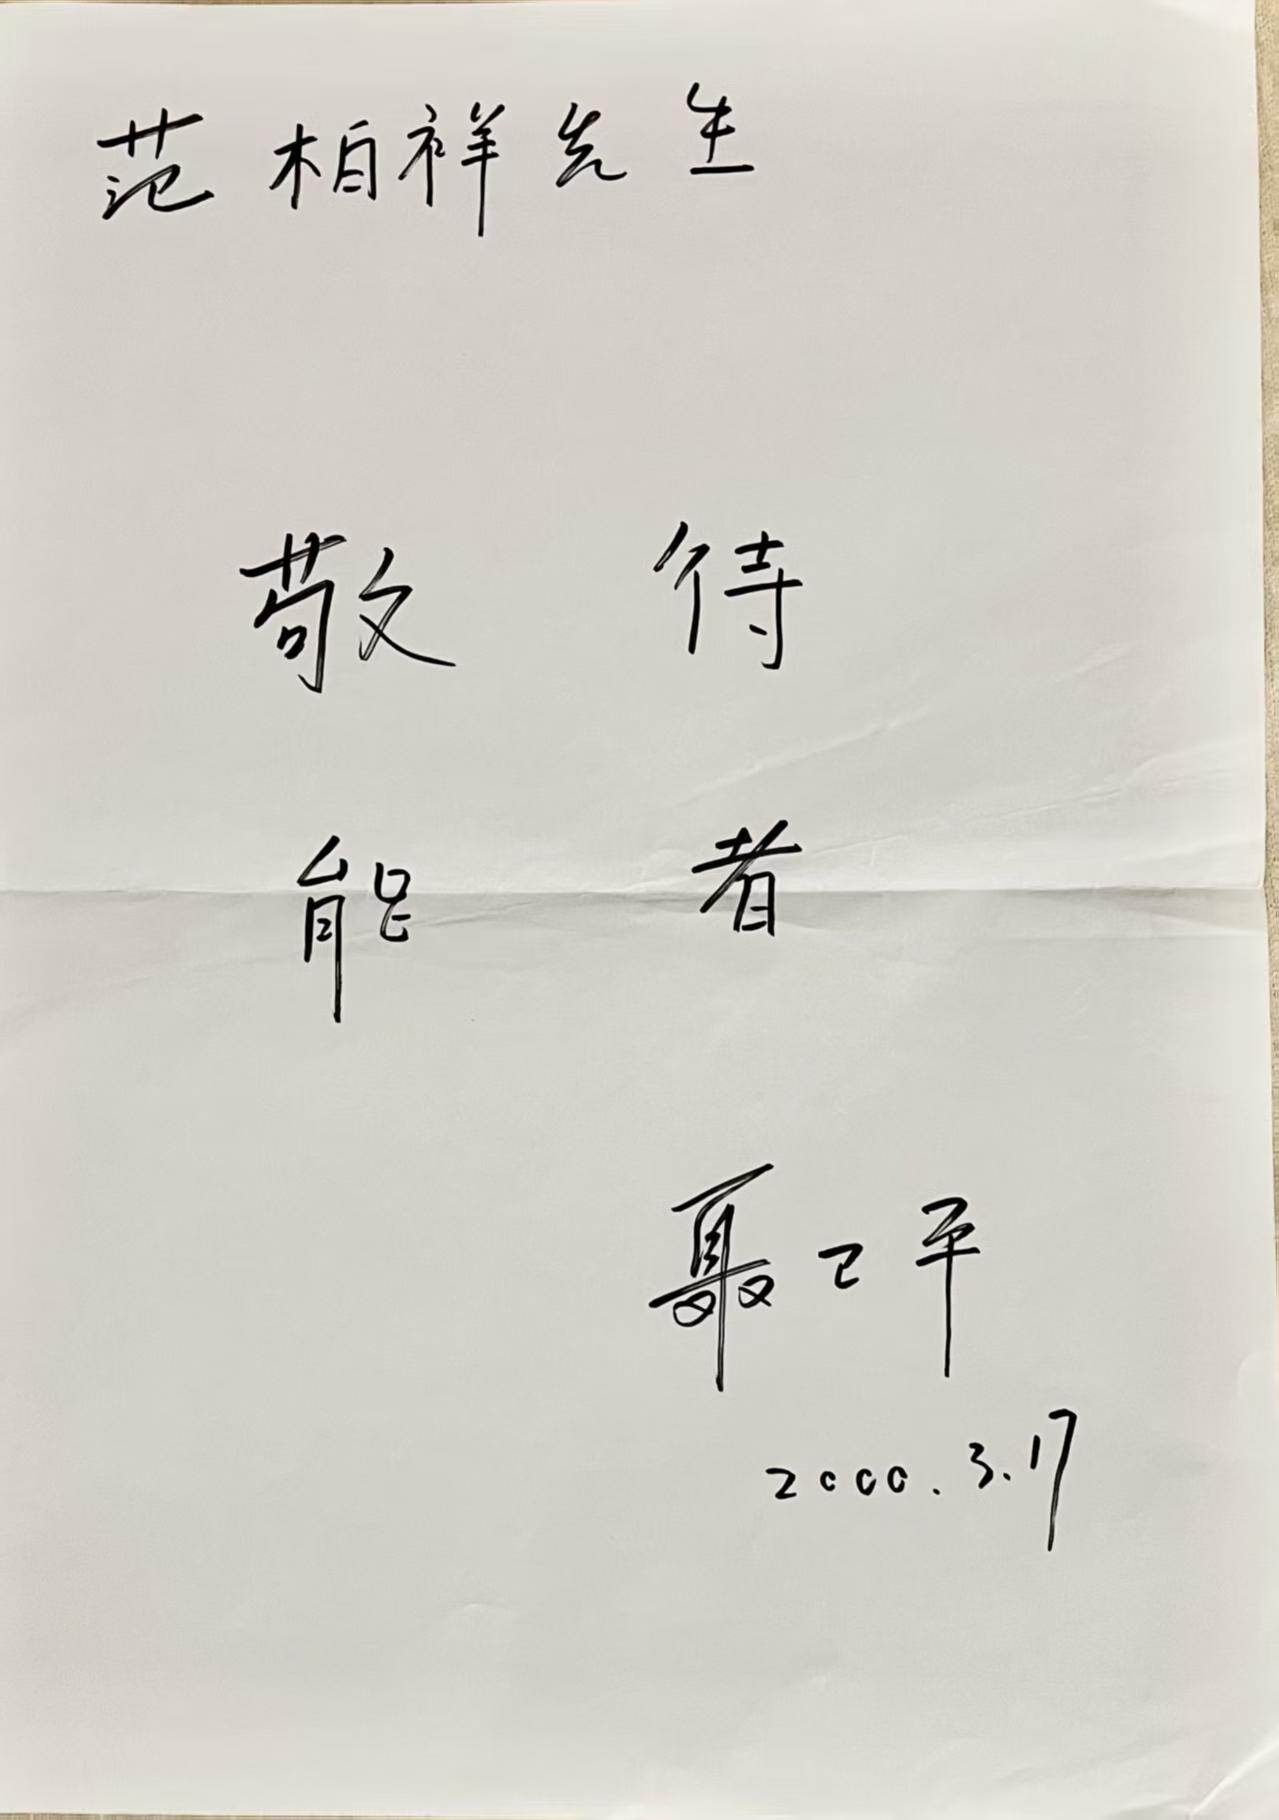 范柏祥先生
敬待
能者
聂卫平
2000.3.17